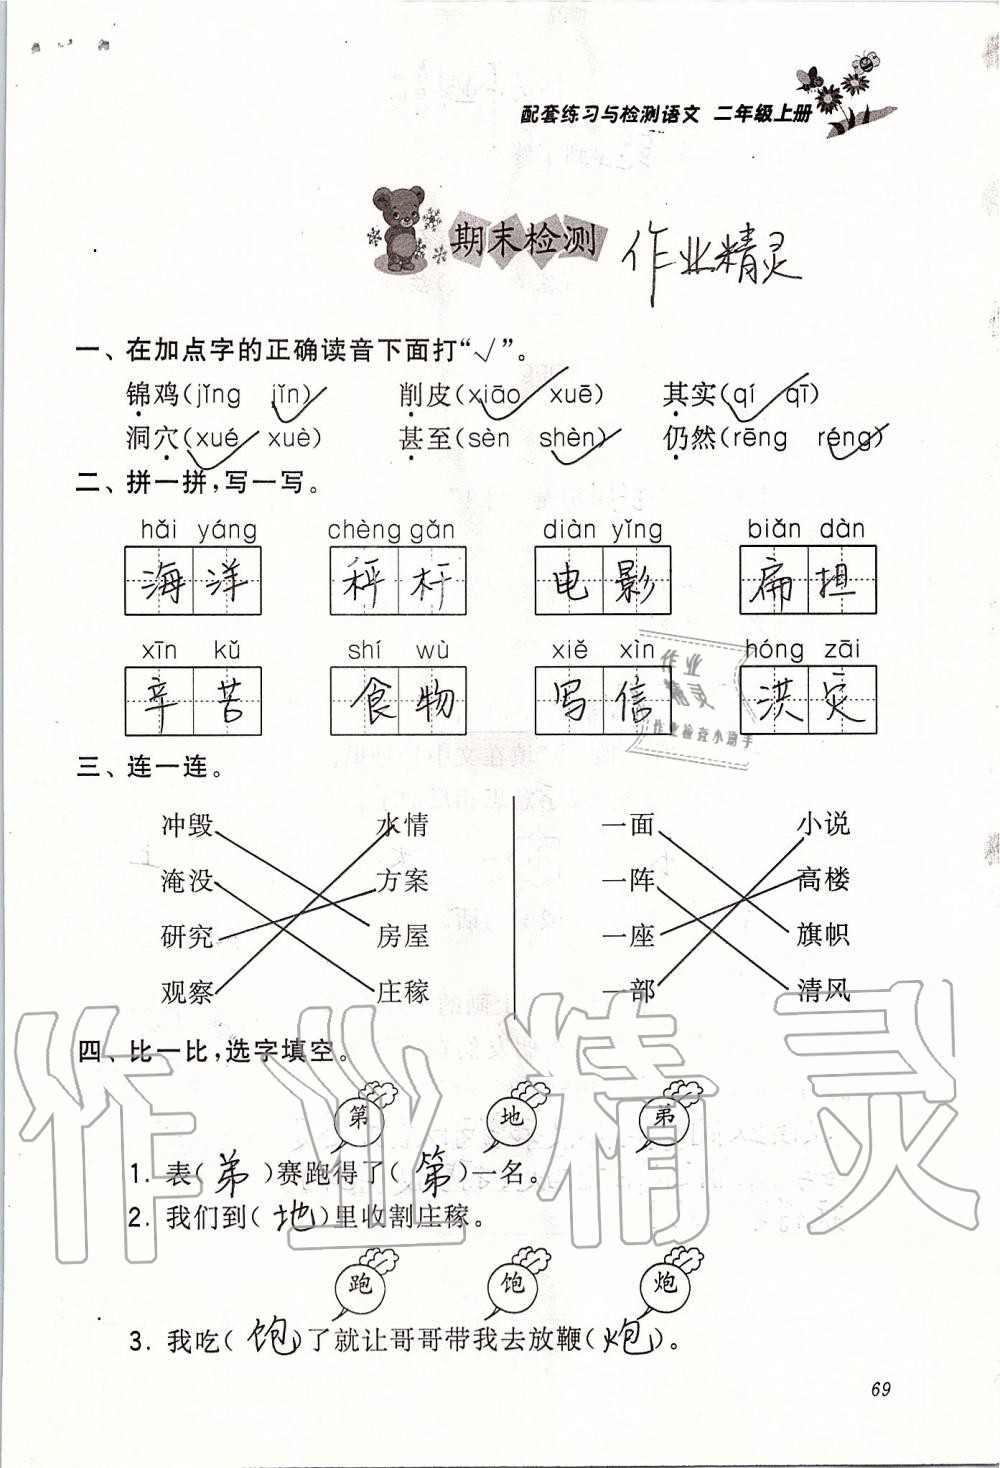 配套练习与检测语文 二年级上册
期末检测 作业精灵
一、在加点字的正确读音下面打“√”。
锦鸡(jǐng jǐn) 削皮(xiāo xuē) 其实(qí qī)
洞穴(xué xuè) 甚至(sèn shèn) 仍然(rēng réng)
二、拼一拼,写一写。
hǎi yáng chèng gǎn diàn yǐng biǎn dàn
海洋 秤杆 电影 扁担
xīn kǔ shí wù xiě xìn hóng zāi
辛苦 食物 写信 洪灾
作业精灵
作业检查小助手
三、连一连。
冲毁 水情 一面 小说
淹没 方案 一阵 高楼
研究 房屋 一座 旗帜
观察 庄稼 一部 清风
四、比一比,选字填空。
第 地 弟
1. 表(弟)赛跑得了(第)一名。
2. 我们到(地)里收割庄稼。
跑 饱 炮
3. 我吃(饱)了就让哥哥带我去放鞭(炮)。
作业精灵
69